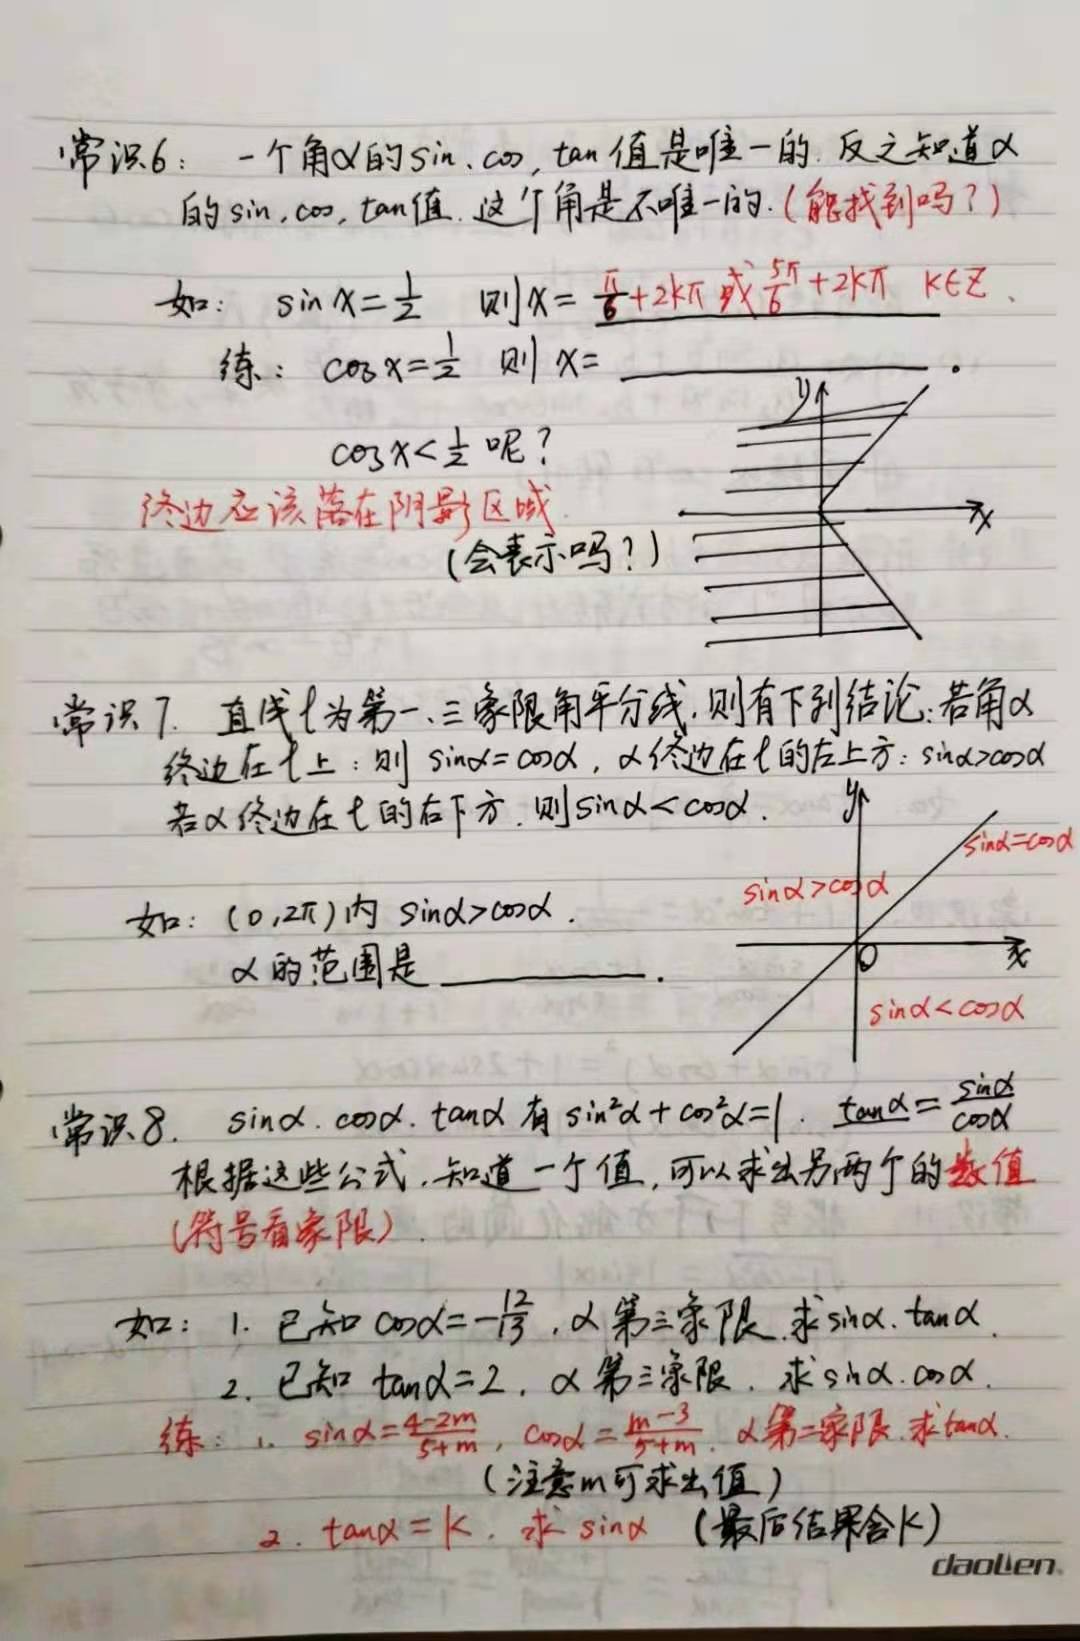 常识6: 一个角α的sin、cos, tan值是唯一的. 反之知道α
的sin, cos, tan值. 这个角是不唯一的. (能找到吗?)
如: sin x = 1/2 则 x = π/6 + 2kπ 或 5π/6 + 2kπ k∈Z.
练: cos x = 1/2 则 x = ________.
y
cos x < 1/2 呢?
终边应该落在阴影区域.
x
(会表示吗?)
常识7. 直线l为第一、三象限角平分线, 则有下列结论: 若角α
终边在l上: 则 sinα=cosα, α终边在l的左上方: sinα>cosα
若α终边在l的右下方, 则sinα<cosα.
y
sinα=cosα
sinα>cosα
如: (0,2π)内 sinα>cosα.
α的范围是 ________.
O
x
sinα<cosα
常识8. sinα. cosα. tanα 有 sin²α + cos²α=1. tanα = sinα/cosα
根据这些公式, 知道一个值, 可以求出另两个的数值
(符号看象限).
如: 1. 已知 cosα = -12/13, α第三象限, 求sinα. tanα.
2. 已知 tanα=2, α第三象限. 求sinα. cosα.
练: 1. sinα = (4-2m)/(5+m), cosα = (m-3)/(5+m). α第二象限. 求tanα.
(注意m可求出值)
2. tanα = k. 求 sinα (最后结果含k)
daolien